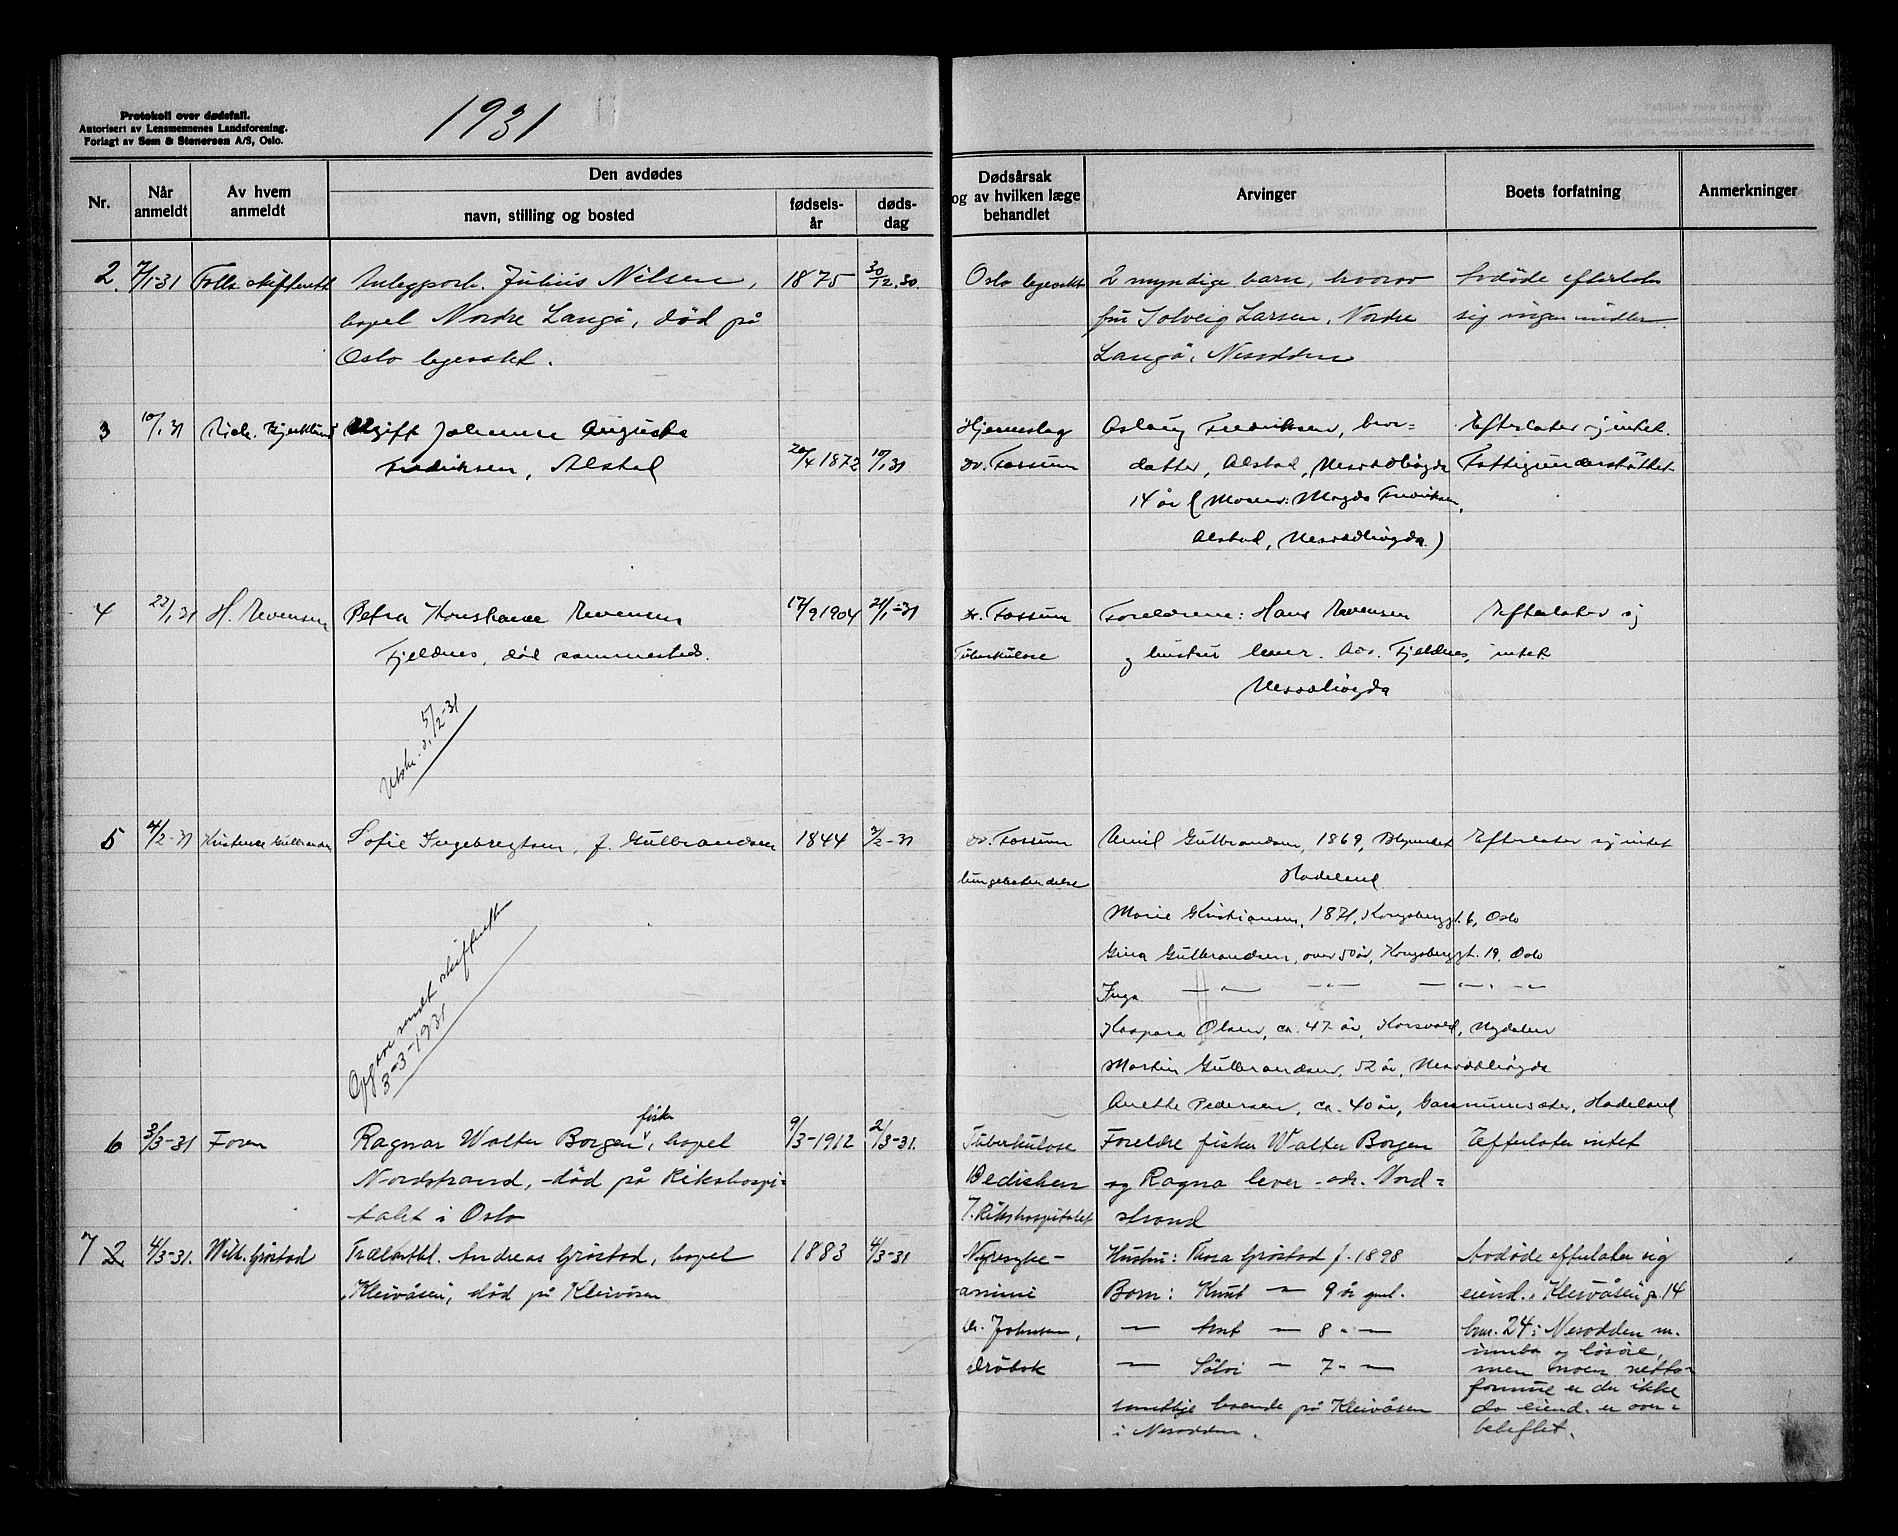 Protokoll over dødsfall.
Autorisert av Lensmennenes Landsforening.
Forlagt av Sem & Stenersen A/S, Oslo.
1931
Nr.
Når anmeldt
Av hvem anmeldt
Den avdødes
navn, stilling og bosted
fødsels-år
døds-dag
Dødsårsak og av hvilken læge behandlet
Arvinger
Boets forfatning
Anmerkninger
2. 7/1-31 Follo skifterett
Julius Nilsen,
bopel Nordre Langö, død på
Oslo legevakt.
1875 30/12.30.
Oslo legevakt
2 myndige barn, hvorav
fru Solveig Larsen, Nordre
Langö, Nesodden
Avdøde efterlater
sig ingen midler.
3 10/1 31
Ugift Johanne Augusta
Fredriksen, Alstad
20/4 1872 10/1 31
Hjerneslag
Dr. Fossum
Aslaug Fredriksen, bror=
datter, Alstad, Nesoddhögda
14 år (Moren: Magda Fredriksen,
Alstad, Nesoddhögda.)
Efterlater sig intet.
Fattigunderstöttet
4 22/1 31 H. Evensen
Petra Konstanse Evensen
Fjeldnes, död sammesteds.
17/9 1904 21/1-31
Dr. Fossum
Tuberkulose
Foreldrene: Hans Evensen
og hustru lever. Adr. Fjeldnes,
Nesoddhögda
Efterlater sig
intet
Utskr. s. 5/2-31
5 4/2-31 Kristence Gulbrandsen
Sofie Ingebregtsen, f. Gulbrandsen
1844 2/2-31
Dr. Fossum
lungebetendelse
Emil Gulbrandsen, 1869,
Hadeland
Marie Kristiansen, 1871, Kongsberggt. 6, Oslo
Gina Gulbrandsen, over 50 år, Kongsberggt. 19, Oslo
Inga — „ — — „ — — „ — „ —
Kaspara Olsen, ca. 47 år, Korsvold, Nydalen
Martin Gulbrandsen, 52 år, Nesoddhögda
Anette Pedersen, ca. 40 år, Hadeland
Efterlater sig intet
Opgave sendt skifteretten
3-3-1931
6 3/3-31 Faren
fisker
Ragnar Walter Borgen, bopel
Nordstrand, - död på Rikshospi-
talet i Oslo
9/3-1912 2/3-31.
Tuberkulose
Medisinen
7. Rikshospitalet
Foreldre fisker Walter Borgen
og Ragna lever - adr. Nord=
strand
Efterlater intet
7 2 4/3-31. Wilh. Gröstad
Trælasthl. Andreas Gröstad, bopel
Kleivåsen, död på Kleivåsen
1883 4/3-31
Nyresyke-
Dr. Johnsen,
Dröbak
Hustru: Thora Gröstad f. 1898
Barn: Knut — 9 år gml.
— Arnt — 8 „ —
— Sölvi — 7 „ —
samtlige boende på Kleivåsen
i Nesodden.
Avdöde efterlater sig
eiend. i Kleivåsen g. 14
bnr. 24 i Nesodden m.
innbo og lösöre,
men noen netto-
formue er der ikke
da eiend. er over-
beheftet.